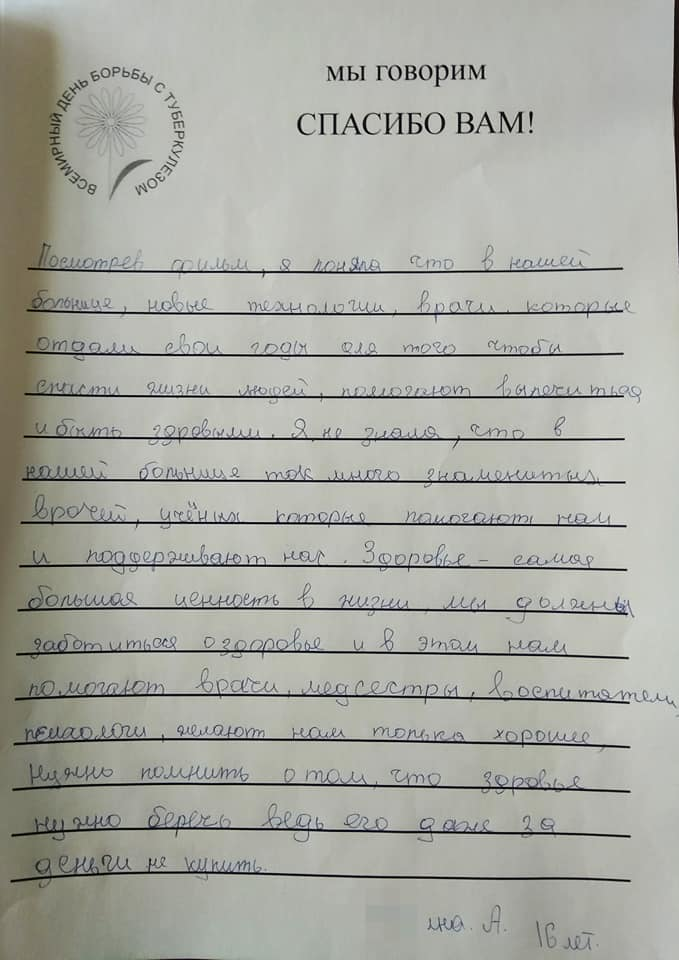 ВСЕМИРНЫЙ ДЕНЬ БОРЬБЫ С ТУБЕРКУЛЕЗОМ
мы говорим
СПАСИБО ВАМ!
Посмотрев фильм, я поняла что в нашей
больнице, новые технологии, врачи, которые
отдали свои годы для того чтобы
спасти жизни людей, помогают вылечиться
и быть здоровыми. Я не знала, что в
нашей больнице так много знаменитых
врачей, учёных которые помогают нам
и поддерживают нас. Здоровье – самая
большая ценность в жизни, мы должны
заботиться о здоровье и в этом нам
помогают врачи, медсестры, воспитатели,
психологи, желают нам только хорошее,
Нужно помнить о том, что здоровье
нужно беречь ведь его даже за
деньги не купить.
А. 16 лет.